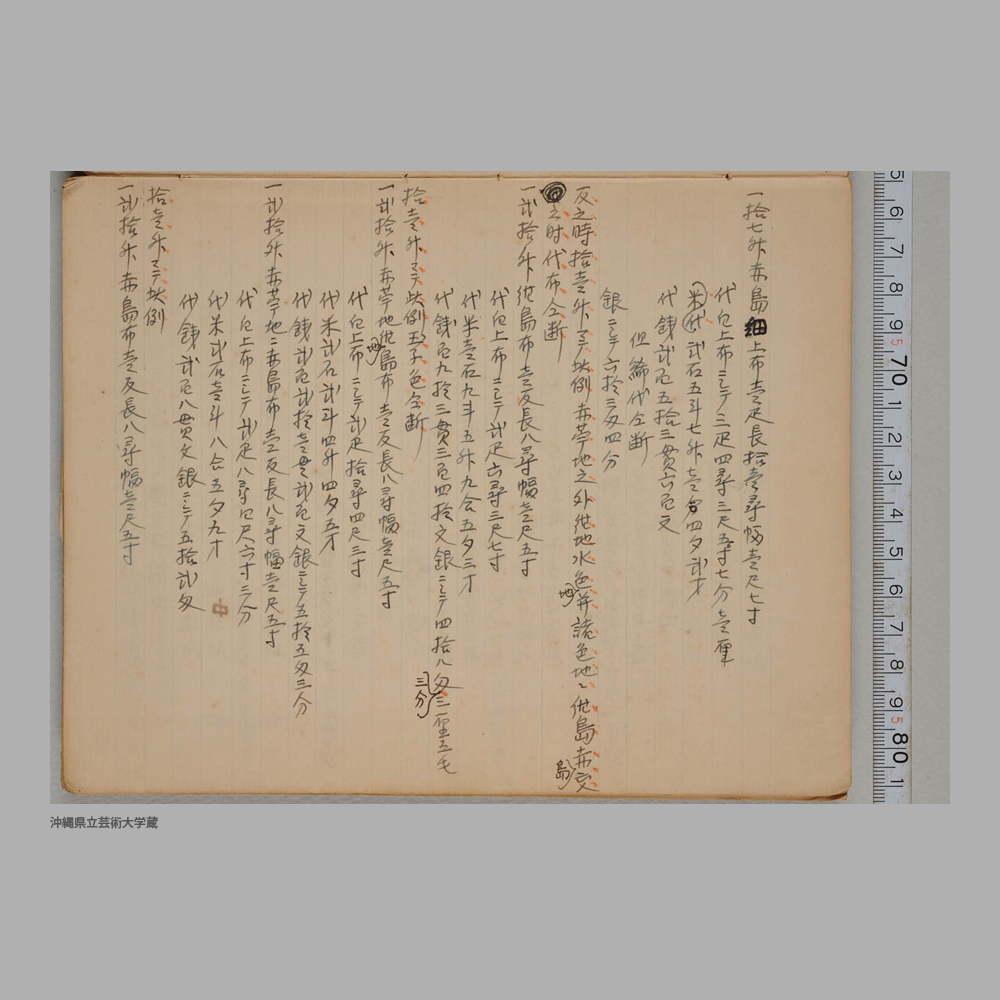 一拾七舛赤島細上布壱疋長拾壱尋幅壱尺七寸
代白上布ニシテ三疋四尋三尺五寸七分壱厘
米代弐石五斗七舛壱合四夕弐才
代銭弐百五拾三貫六百文
但綿代仝断
銀ニシテ六拾三匁四分
反之時拾壱舛ヨテ此例赤苧地之外紺地水色地并諸色地ニ紺島赤島
之时代布仝断
一弐拾舛紺島布壱反長八尋幅壱尺五寸
代白上布ニシテ弐疋六尋三尺七寸
代米壱石九斗五舛九合五夕三才
代銭百九拾三貫三百四拾文銀ニシテ四拾八匁三分三厘五毛
拾壱舛ヨテ此例五子色仝断
一弐拾舛赤苧地紺地島布壱反長八尋幅壱尺五寸
代白上布ニシテ弐疋拾尋四尺三寸
代米弐石弐斗四舛四夕五才
代銭弐百弐拾壱貫弐百文銀ニシテ五拾五匁三分
一弐拾舛赤苧地ニ赤島布壱反長八尋幅壱尺五寸
代白上布ニシテ弐疋八尋四尺六寸三分
代米弐石壱斗八合五夕九才
代銭弐百八貫文銀ニシテ五拾弐匁
拾壱舛ヨテ此例
一弐拾舛赤島布壱反長八尋幅壱尺五寸
沖縄県立芸術大学蔵